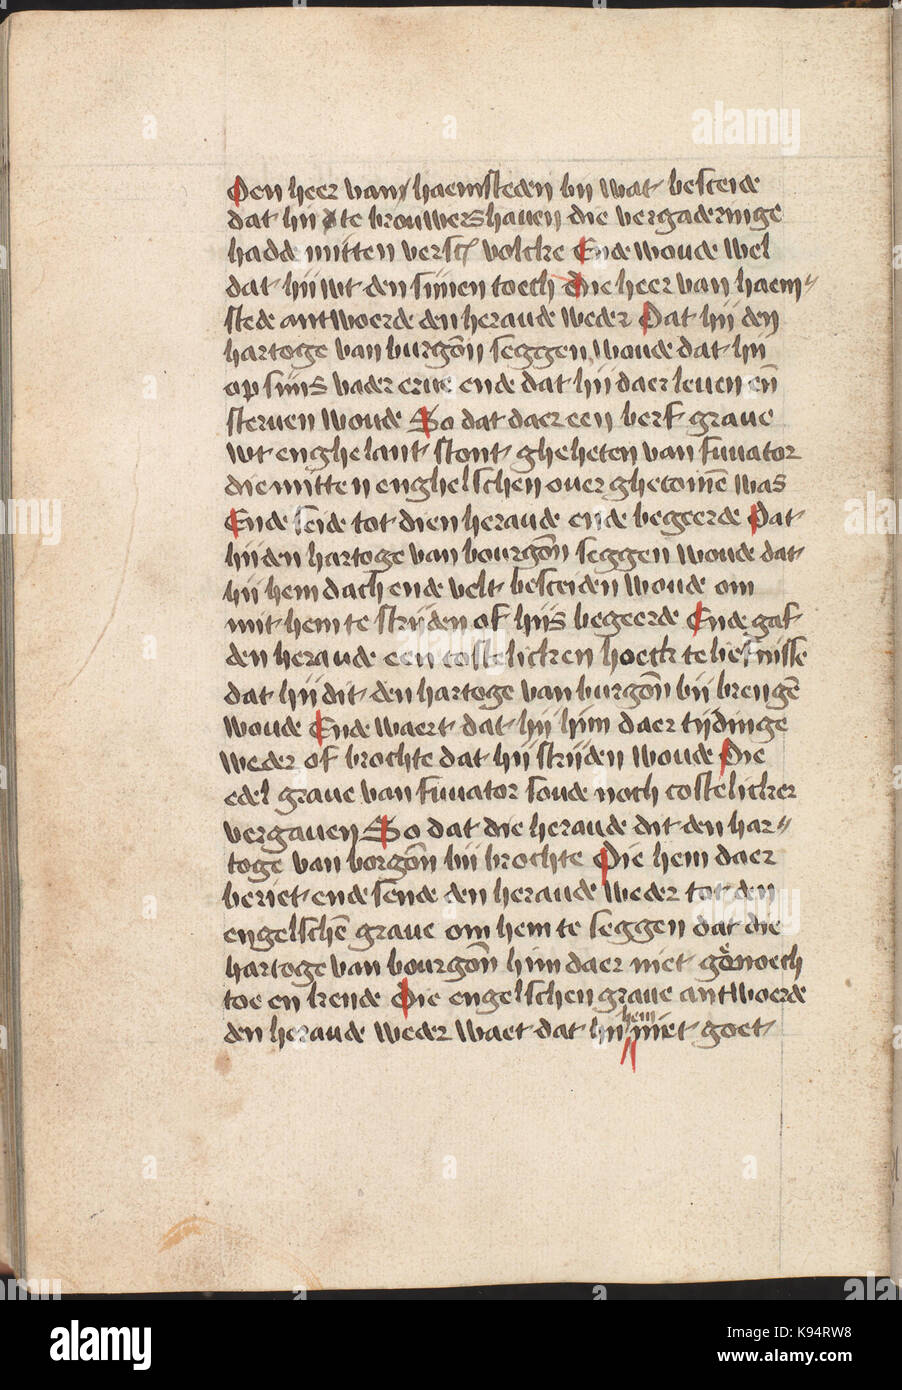 Den heer van haemsteden bij wat besceide
dat hij te brouwershauen die vergaderinge
hadde mitten versch volcke Ende woude wel
dat hij wt den sijnen toech Die heer van haem=
stede antwoerde den heraude weder Dat hij den
hartoge van burgōn seggen woude dat hij
op sijns vader erue ende dat hij daer leuen eñ
steruen woude So dat daer een berk graue
wt enghelant stont gheheten van fuuator
die mitten enghelschen ouer ghecomē was
Ende seide tot dien heraude ende begeerde Dat
hij den hartoge van bourgōn seggen woude dat
hij hem dach ende velt besceiden woude om
mit hem te strijden of hijs begeerde Ende gaf
den heraude een costelicken hoeck te liefnisse
dat hij dit den hartoge van burgōn bij brengē
woude Ende waert dat hij him daer tijdinge
weder of brochte dat hij strijden woude Die
edel graue van fuuator soude noch costelicker
vergauen So dat die heraude dit den har=
toge van borgōn bij brochte Die hem daer
beriet ende sende den heraude weder tot den
engelschē graue om hem te seggen dat die
hartoge van bourgōn him daer niet genoech
toe en kende Die engelschen graue antwoerde
hem
den heraude weder waet dat hij niet goet
alamy
K94RW8
www.alamy.com